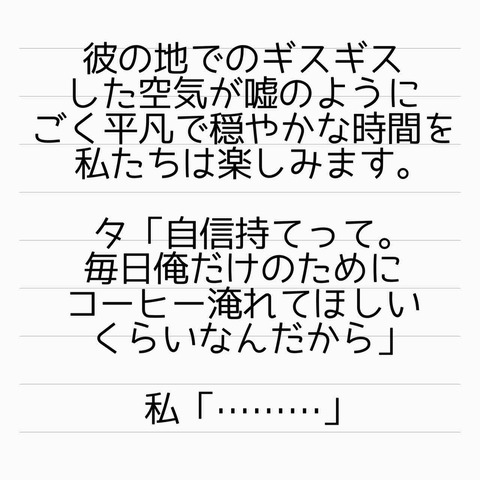 彼の地でのギスギス
した空気が嘘のように
ごく平凡で穏やかな時間を
私たちは楽しみます。
タ「自信持てって。
毎日俺だけのために
コーヒー淹れてほしい
くらいなんだから」
私「………」